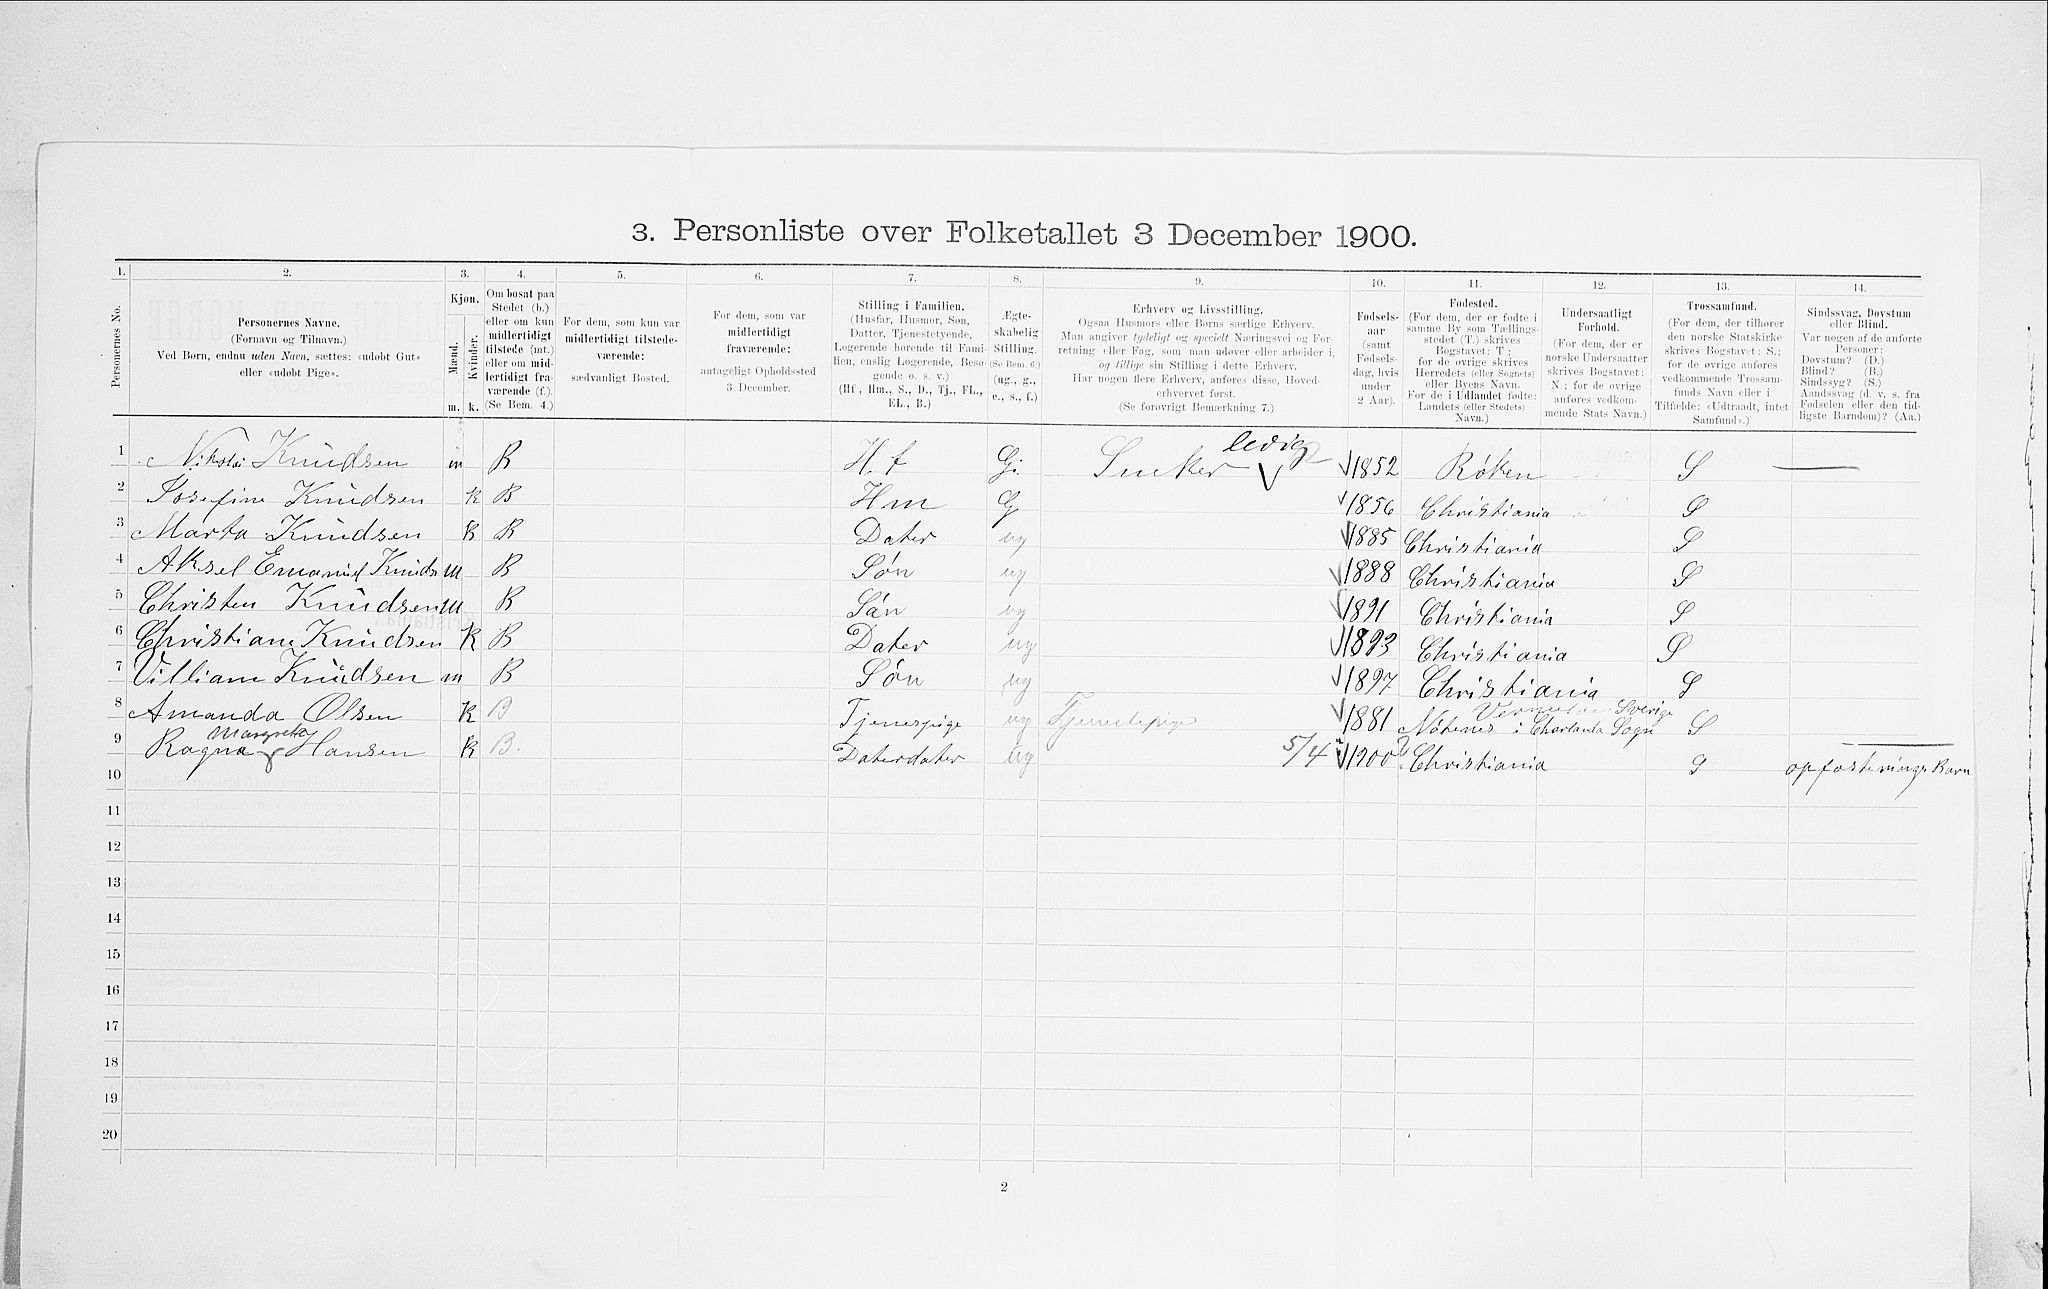 3. Personliste over Folketallet 3 December 1900.
1. 2. 3. 4. 5. 6. 7. 8. 9. 10. 11. 12. 13. 14.
Personernes No.
Personernes Navne.
(Fornavn og Tilnavn.)
Ved Børn, endnu uden Navn, sættes: «udøbt Gut»
eller «udøbt Pige».
Kjøn.
Mænd.
Kvinder.
m. k.
Om bosat paa
Stedet (b.)
eller om kun
midlertidigt
tilstede (mt.)
eller om mid-
lertidigt fra-
værende (f.).
(Se Bem. 4.)
For dem, som kun var
midlertidigt tilstede-
værende:
sædvanligt Bosted.
For dem, som var
midlertidigt
fraværende:
antageligt Opholdssted
3 December.
Stilling i Familien.
(Husfar, Husmor, Søn,
Datter, Tjenestetyende,
Logerende hørende til Fami-
lien, enslig Logerende, Besø-
gende o. s. v.)
(Hf, Hm., S., D., Tj., FL.,
EL., B.)
Ægte-
skabelig
Stilling.
(Se Bem. 6.)
(ug., g.,
e., s., f.)
Erhverv og Livsstilling.
Ogsaa Husmors eller Børns særlige Erhverv.
Man angiver tydeligt og specielt Næringsvei og For-
retning eller Fag, som man udøver eller arbeider i,
og tillige sin Stilling i dette Erhverv.
Har nogen flere Erhverv, anføres disse, Hoved-
erhvervet først.
(Se forøvrigt Bemærkning 7.)
Fødsels-
aar
(samt
Fødsels-
dag, hvis
under
2 Aar).
Fødested.
(For dem, der er fødte i
samme By som Tællings-
stedet (T.) skrives
Bogstavet: T;
for de øvrige skrives
Herredets (eller Sognets)
eller Byens Navn.
For de i Udlandet fødte:
Landets (eller Stedets)
Navn.)
Undersaatligt
Forhold.
(For dem, der er
norske Undersaatter
skrives Bogstavet:
N.; for de øvrige
anføres vedkom-
mende Stats Navn.)
Trossamfund.
(For dem, der tilhører
den norske Statskirke
skrives Bogstavet: S.;
for de øvrige anføres
vedkommende Trossam-
funds Navn eller i
Tilfælde: «Udtraadt, intet
Samfund».)
Sindssvag, Døvstum
eller Blind.
Var nogen af de anførte
Personer:
Døvstum? (D.)
Blind? (B.)
Sindssyg? (S.)
Aandssvag (d. v. s. fra
Fødselen eller den tid-
ligste Barndom)? (Aa.)
ledig
1 Nikolai Knudsen m B H.f Gi. 1852 Røken S
2 Josefine Knudsen k B Hm G 1856 Christiania S
3 Marta Knudsen k B Dater ug 1885 Christiania S
4 Aksel Emanuel Knuds m B Søn ug 1888 Christiania S
5 Christen Knudsen m B Søn ug 1891 Christiania S
6 Christiane Knudsen k B Dater ug 1893 Christiania S
7 Villiam Knudsen m B Søn ug 1897 Christiania S
Sverige
8 Amanda Olsen k B Tjenespige ug Tjenestepige 1881 i Sogn S
Margreta
9 Ragna Hansen k B. Daterdater ug 5/4 1900 Christiania S opfosterings Barn
10
11
12
13
14
15
16
17
18
19
20
2